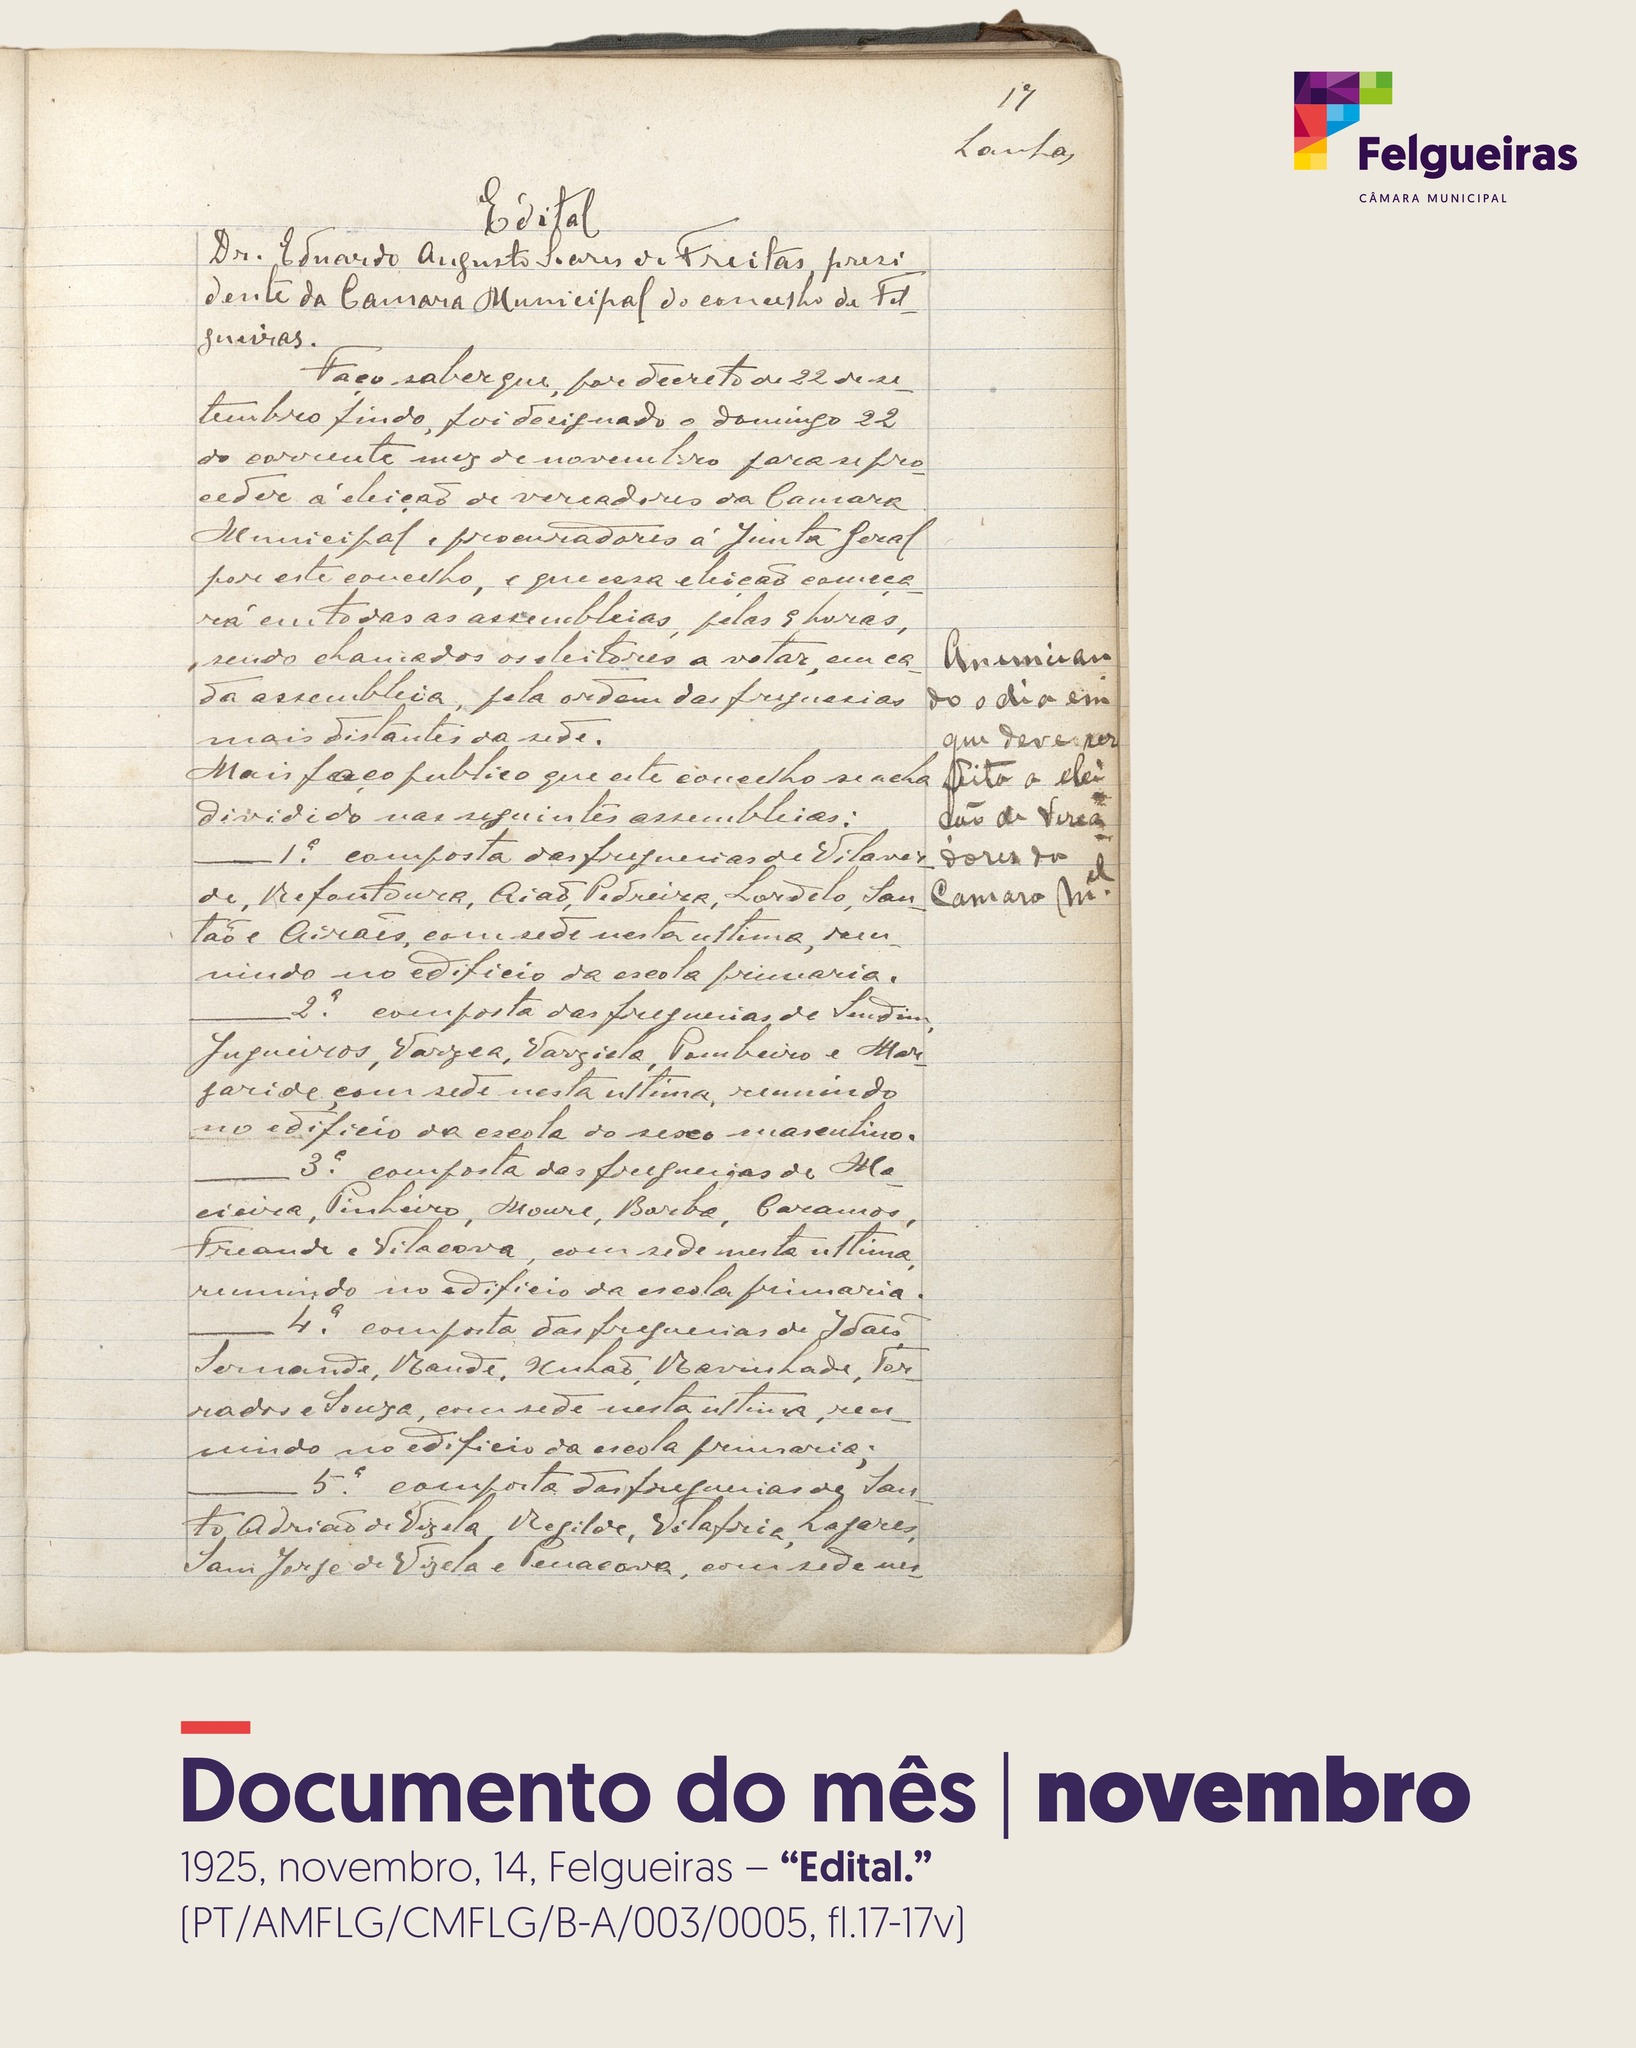 17
Edital
Dr. Eduardo Augusto Soares de Freitas, presi
dente da Camara Municipal do concelho de Fel_
gueiras.
Faço saber que, por decreto de 22 de se_
tembro findo, foi designado o domingo 22
do corrente mez de novembro para se pro_
ceder á eleição de vereadores da Camara
Municipal e procuradores á Junta Geral
por este concelho, e que essa eleição começa_
rá em todas as assembleias, pelas 9 horas,
sendo chamados os eleitores a votar, em ca_
da assembleia, pela ordem das freguesias
mais distantes da sede.
Mais faço publico que este concelho se acha
dividido nas seguintes assembleias:
1.ª composta das freguesias de Vilaver_
de, Refontoura, Aião, Pedreira, Lordelo, San_
tão e Airães, com sede nesta ultima, reu_
nindo no edificio da escola primaria.
2.ª composta das freguesias de Sendim,
Jugueiros, Varzea, Varziela, Pombeiro e Mar_
garide, com sede nesta ultima, reunindo
no edificio da escola do sexo masculino.
3.ª composta das freguesias de Ma_
cieira, Pinheiro, Moure, Borba, Caramos,
Friande e Vilacova, com sede nesta ultima,
reunindo no edificio da escola primaria.
4.ª composta das freguesias de Idães,
Sernande, Rande, Unhão, Revinhade, Tor_
rados e Souza, com sede nesta ultima, reu_
nindo no edificio da escola primaria;
5.ª composta das freguesias de San_
to Adrião de Vizela, Regilde, Vilafria, Lagares,
Sam Jorge de Vizela e Penacova, com sede nes_
Anuncian
do o dia em
que deve ser
feita a elei
ção de Verea
dores da
Camara M.el
Felgueiras
CÂMARA MUNICIPAL
Documento do mês | novembro
1925, novembro, 14, Felgueiras – “Edital.”
(PT/AMFLG/CMFLG/B-A/003/0005, fl.17-17v)